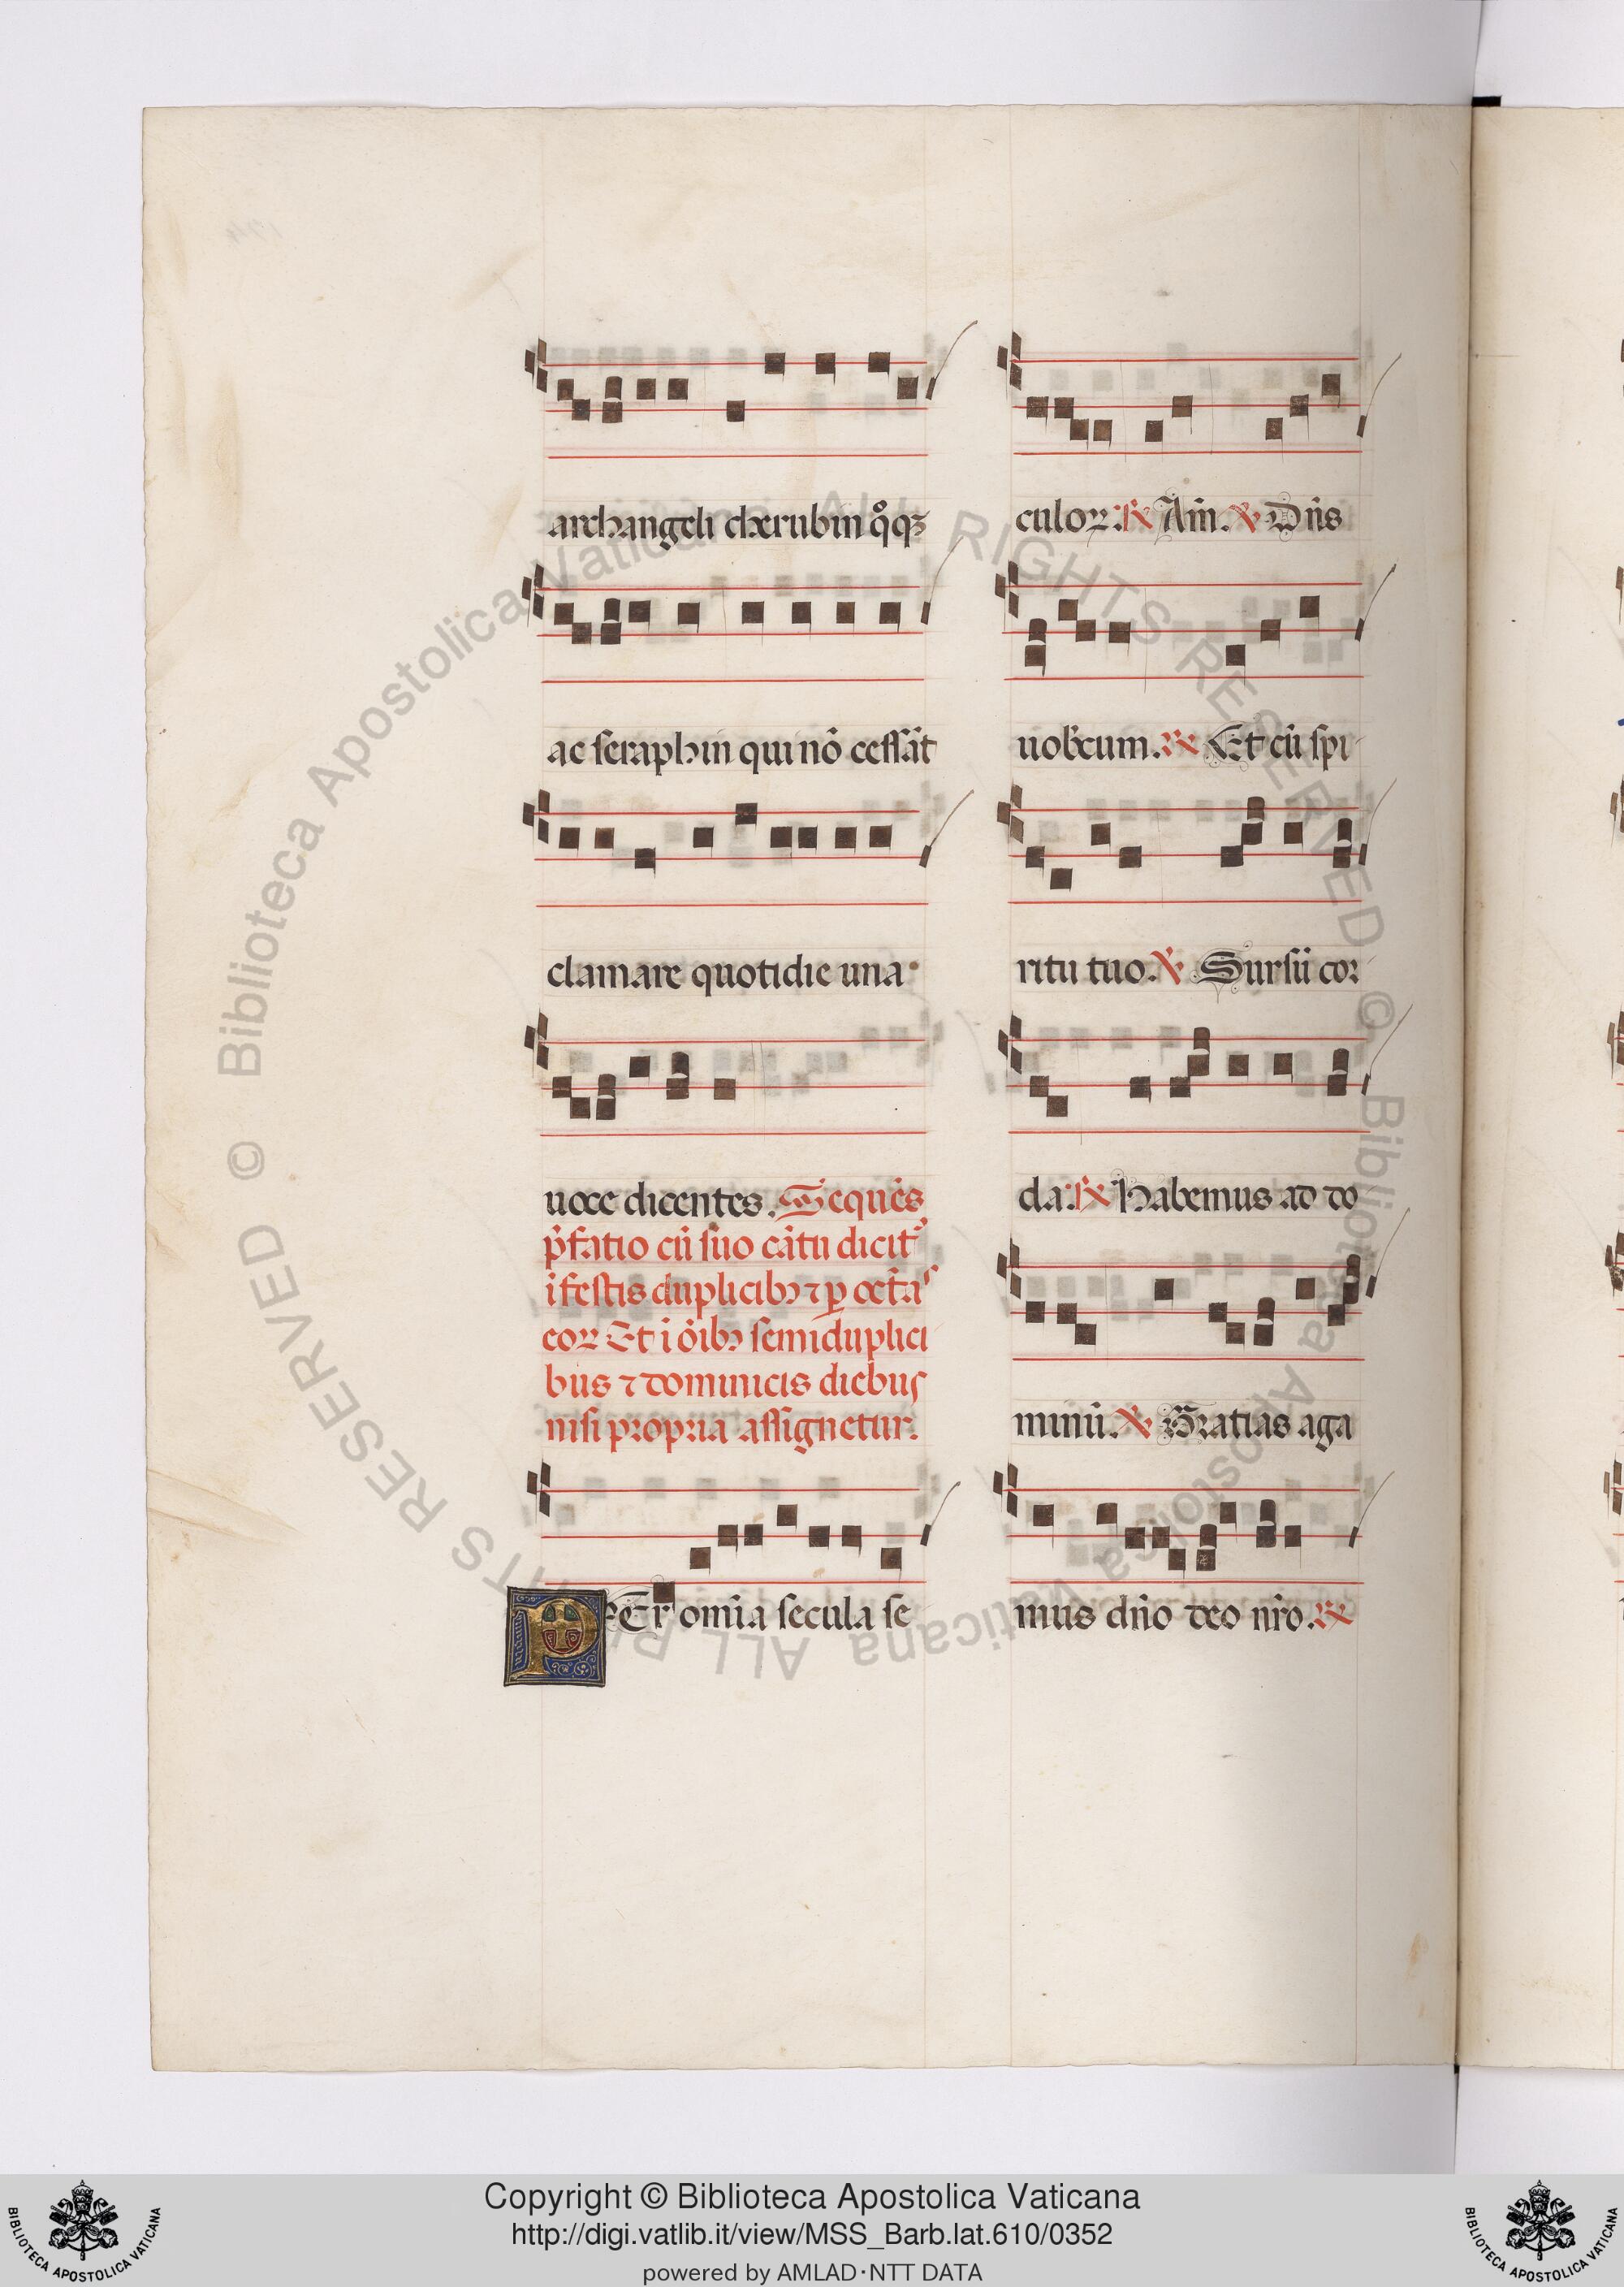 archangeli cherubin qͦqꝫ
ac seraphin qui nō cessāt
clamare quotidie una
uoce dicentes. Sequēs
p̄fatio cū suo cātu dicit᷑
ī festis duplicibꝫ ⁊ ꝑ octā
coꝝ Et ī oībꝫ semiduplici
bus ⁊ dominicis diebus
nisi propria assignetur.
PEr om̄ia secula se
culoꝝ. ℟ Am̄. ℣ Dn̄s
uob̄cum. ℟ Et cū spi
ritu tuo. ℣ Sursū cor
da. ℟ Habemus ad do
minū. ℣ Gratias aga
mus dn̄o deo nr̄o. ℟
© Biblioteca Apostolica Vaticana ALL RIGHTS RESERVED © Biblioteca Apostolica Vaticana ALL RIGHTS RESERVED
Copyright © Biblioteca Apostolica Vaticana
http://digi.vatlib.it/view/MSS_Barb.lat.610/0352
powered by AMLAD·NTT DATA
BIBLIOTECA APOSTOLICA VATICANA
BIBLIOTECA APOSTOLICA VATICANA